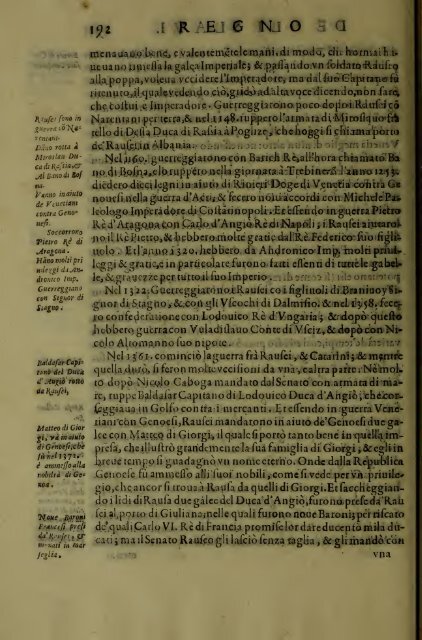 192 DE REGNO
menauano bene, e valentemēte le mani, di modo, che hormai ha-
ueuano rimessa la galea Imperiale; & passādo vn soldato Rauseo
alla poppa, voleua vccidere l'Imperadore, ma dal suo Capitano fù
ritenuto, il quale vedendo ciò, gridò ad alta voce dicendo, non fare,
che costui e Imperadore. Guerreggiarono poco dopoi Rausei cō
Narentani per terra, & nel 1148. ruppero l'armata di Mirosquo fra
tello di Dessa Duca di Rassia à Poglize, che hoggi si chiama porto
de' Rausei in Albania.
Nel 1160. guerreggiarono con Barich Rè, all'hora chiamato Ba
no di Bosna, e lo ruppero nella giornata à Trebine: & l'anno 1253.
diedero dieci legni in aiuto di Rinieri Doge di Venetia contra Ge
nouesi nella guerra d'Acri, & fecero noui accordi con Michele Pa
leologo Imperadore di Costātinopoli. Et essendo in guerra Pietro
Rè d'Aragona con Carlo d'Angiò Rè di Napoli, i Rausei aiutaro-
no il Rè Pietro, & hebbero molte gratie dal Rè Federico suo figli-
uolo. Et l'anno 1320. hebbero da Andronico Imp. molti priui-
leggi & gratie, in particolare furono fatti essenti di tutte le gabel-
le, & grauezze per tutto il suo Imperio.
Nel 1322. Guerreggiarono i Rausei co i figlinoli di Branino Si-
gnor di Stagno, & con gli Vscochi di Dalmisio. & nel 1358. fece-
ro confederatione con Lodouico Rè d'Vngaria; & dopò questo
hebbero guerra con Voladislauo Conte di Vsciz, & dopò con Ni-
colò Altomanno suo nipote.
Nel 1361. cominciò la guerra frà Rausei, & Catarini; & mentre
quella durò, si ferono molte vccisioni da vna, e altra parte: Nè mol-
to dopò Nicolo Caboga mandato dal Senato con armata di ma-
re, ruppe Baldasar Capitano di Lodouico Duca d'Angiò, che cor-
seggiaua in Golfo contra i mercanti. Et essendo in guerra Vene-
tiani con Genouesi, Rausei mandarono in aiuto de' Genouesi due ga-
lee con Matteo di Giorgi, il quale si portò tanto bene in quella im-
presa, che illustrò grandemente la sua famiglia di Giorgi, & egli in
breue tempo si guadagnò vn nome eterno. Onde dalla Republica
Genoese fu ammesso alli suoi nobili, come si vede per vn priuile-
gio, che ancor si troua à Rausa da quelli di Giorgi. Et saccheggian-
do i lidi di Rausa due galee del Duca d'Angiò, furono prese da Rau
sei al porto di Giuliana, nelle quali furono noue Baroni; per riscato
de' quali Carlo VI. Rè di Francia promise lor dare ducento mila du-
cati; ma il Senato Rauseo gli lasciò senza taglia, & gli mandò con
vna
Rausei sono in
guerra cō Na-
rentani.
Dāno rotta à
Miroslau Du-
ca di Rassia, et
Al Bano di Bos
na.
Vanno in aiuto
de Venetiani
contra Geno-
uesi.
Soccorrono
Pietro Rè di
Aragona.
Hāno molti pri
uileggi da An-
dronico Imp.
Guerreggiano
con Signor di
Stagno.
Baldassar Capi
tano del Duca
d'Angiò rotto
da Rausei,
Matteo di Gior
gi, và in aiuto
di Genoesi, che
fù nel 1372.
è ammesso alla
nobiltà di Ge-
noua.
Noue Baroni
Francesi presi
da' Rausei